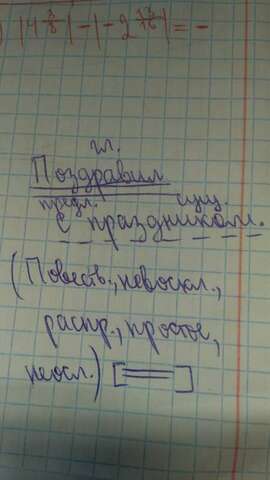 |4 3/8| - |-2 13/16| = -
гл.
Поздравил
предл. сущ.
с праздником.
(Повеств., невоскл.,
распр., простое,
неосл.) [═]